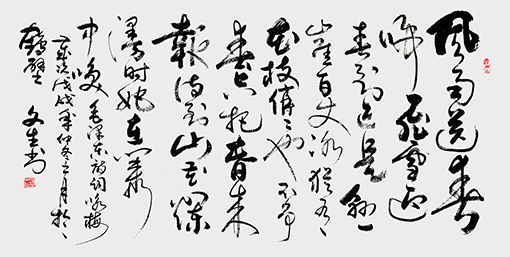 風雨送春
归飛雪迎
春到已是懸
崖百丈冰猶有
花枝俏俏也不争
春只把春来
報待到山花爛
漫时她在丛
中笑 毛泽东诗词咏梅
歲次戊戌年仲冬之月於
鶴壁 文生书